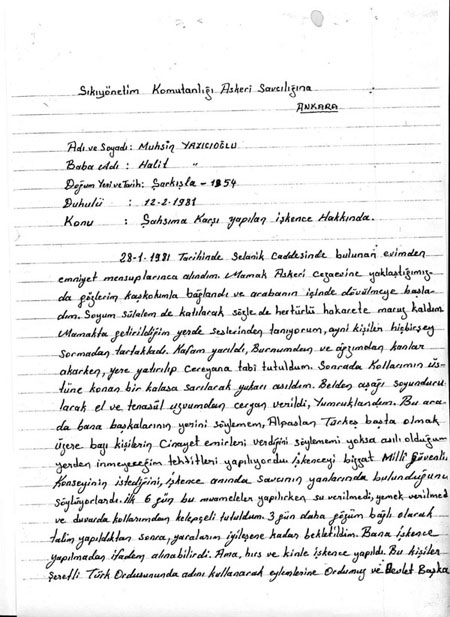 Sıkıyönetim Komutanlığı Askeri Savcılığına
ANKARA
Adı ve Soyadı: Muhsin YAZICIOĞLU
Baba Adı : Halit "
Doğum Yeri ve Tarih: Şarkışla - 1954
Duhulü : 12-2-1981
Konu : Şahsıma Karşı yapılan işkence Hakkında.
28-1-1981 Tarihinde Selanik Caddesinde bulunan evimden
emniyet mensuplarınca alındım. Mamak Askeri cezaevine yaklaştığımız-
da gözlerim kaşkolumla bağlandı ve arabanın içinde dövülmeye başla-
dım. Soyum sülalem de katılarak sözle de hertürlü hakarete maruz kaldım.
Mamakta getirildiğim yerde seslerinden tanıyorum, ayni kişiler hiçbirşey
sormadan tartakladı. Kafam yarıldı, Burnumdan ve ağzımdan kanlar
akarken, yere yatırılıp Cereyana tabi tutuldum. Sonrada Kollarımın üs-
tüne konan bir kalasa sarılarak yukarı asıldım. Belden aşağı soyunduru-
larak el ve tenasül uzvumdan ceryan verildi, Yumruklandım. Bu ara-
da bana başkalarının yerini söylemem, Alpaslan Türkeş başta olmak
üzere bazı kişilerin Cinayet emirleri verdiğini söylememi yoksa asılı olduğum
yerden inmeyeceğim tehditleri yapılıyordu. İşkenceyi bizzat Milli Güvenlik
Konseyinin istediğini, işkence anında savcının yanlarında bulunduğunu
söylüyorlardı. İlk 6 gün bu muameleler yapılırken su verilmedi, yemek verilmedi
ve duvarda kollarımdan kelepçeli tutuldum. 3 gün daha gözüm bağlı olarak
talim yapıldıktan sonra, yaralarım iyileşene kadar bekletildim. Bana işkence
yapılmadan ifadem alınabilirdi. Ama, hırs ve kinle işkence yapıldı. Bu kişiler
Şerefli Türk Ordusununda adını kullanarak eylemlerine Ordumuz ve Devlet Başka